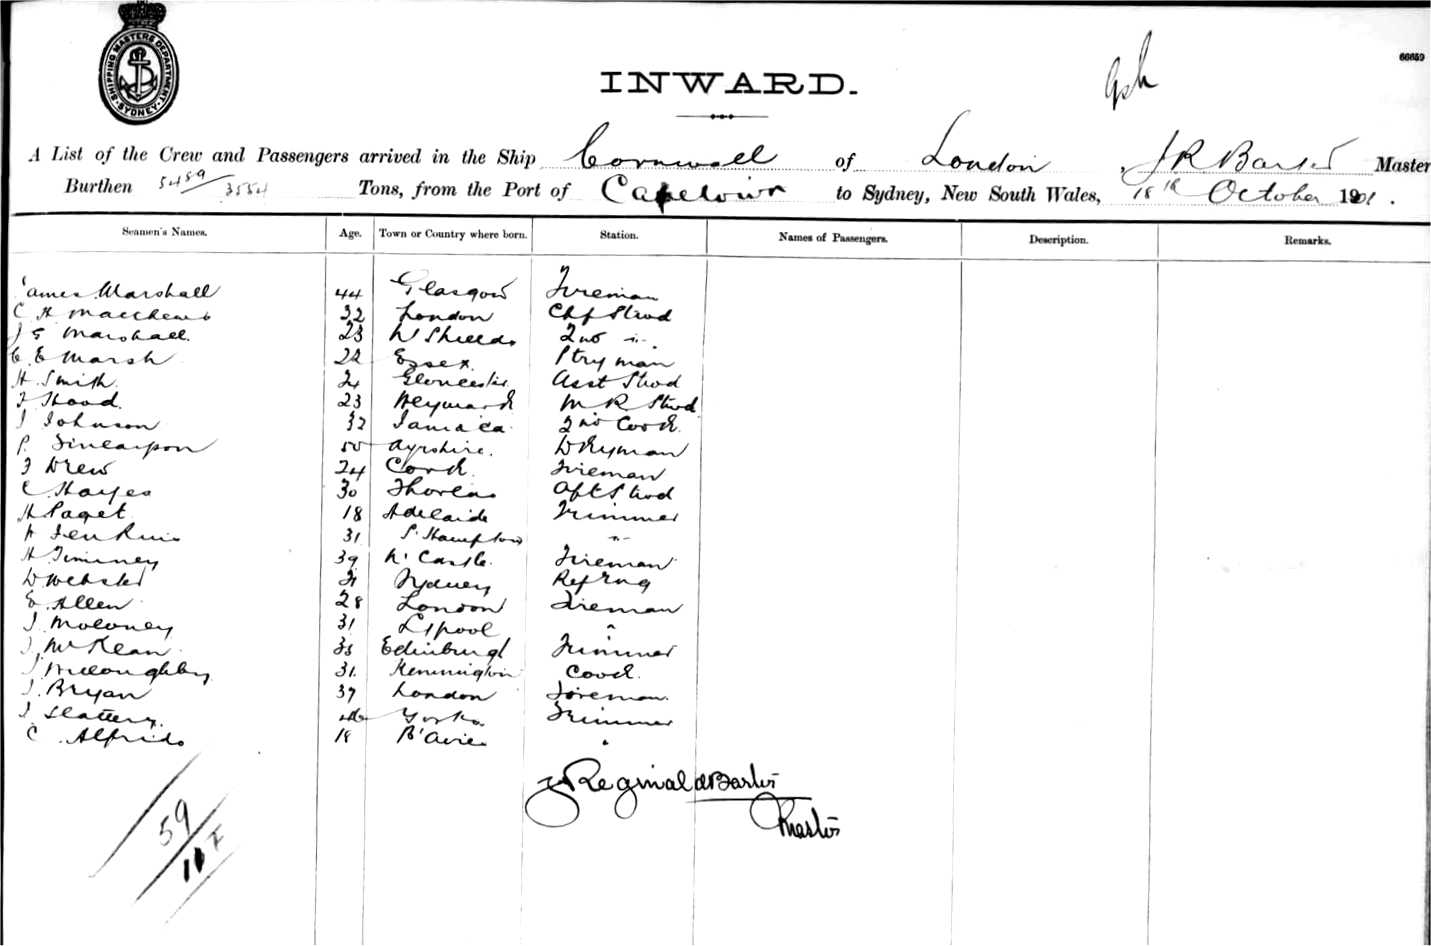 SHIPPING MASTERS DEPARTMENT. SYDNEY.
66659
INWARD.
A List of the Crew and Passengers arrived in the Ship Cornwall of London, J R Barter Master
Burthen 5489/3554 Tons, from the Port of Capetown to Sydney, New South Wales, 18th October 1901.
Seamen's Names. Age. Town or Country where born. Station. Names of Passengers. Description. Remarks.
James Marshall 44 Glasgow Fireman
C H Matthews 32 London Chf Stwd
J G Marshall. 23 N Shields 2nd "
C E Marsh 22 Essex. Ptryman
H. Smith. Gloucester Asst Stwd
F Hood. 23 M R Stwd
J Johnson 32 Jamaica 2nd Cook.
P. 50 Ayrshire. Dkyman
F Drew 24 Cork. Fireman
C Hayes 30 Aft Stwd
H Paget 18 Adelaide Trimmer
Jenkins 31 S'Hampton "
H Timmey 39 N'Castle. Fireman
D Webster 31 Sydney Refrng
E. Allen 28 London Fireman
J Moloney 31 L'pool "
J. McKean 33 Edinburgh Trimmer
J Willoughby 31. Kennington Cook.
J. Bryan 37 London Foreman.
J Slattery. Yorks. Trimmer
C. Alfrids 18 B'Aires "
J Reginald Barter
Master
59